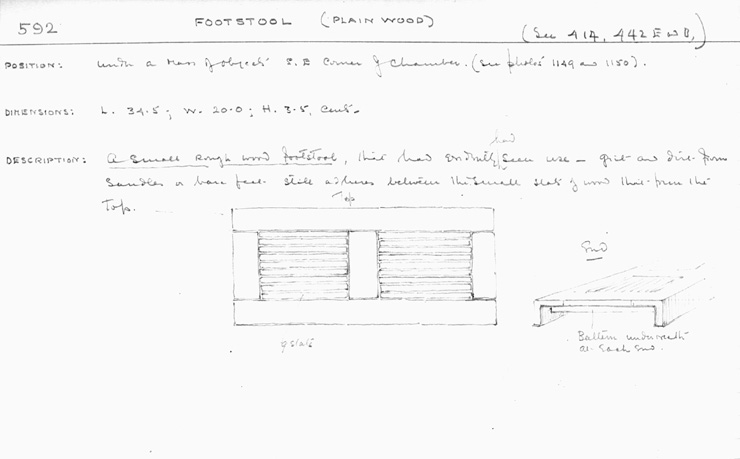 592 FOOTSTOOL (PLAIN WOOD) (See 414, 442 E and D,)
POSITION: under a mass of objects S.E Corner of Chamber. (See photos 1149 and 1150).
DIMENSIONS: L. 34.5; W. 20.0; H. 3.5, Cent.
had
DESCRIPTION: A small rough wood footstool, that had evidently seen use – grit and dirt from
sandles or bare feet still adheres between the small slats of wood that form the
Top.
Top
End
9 slats
Battens underneath
at each end.